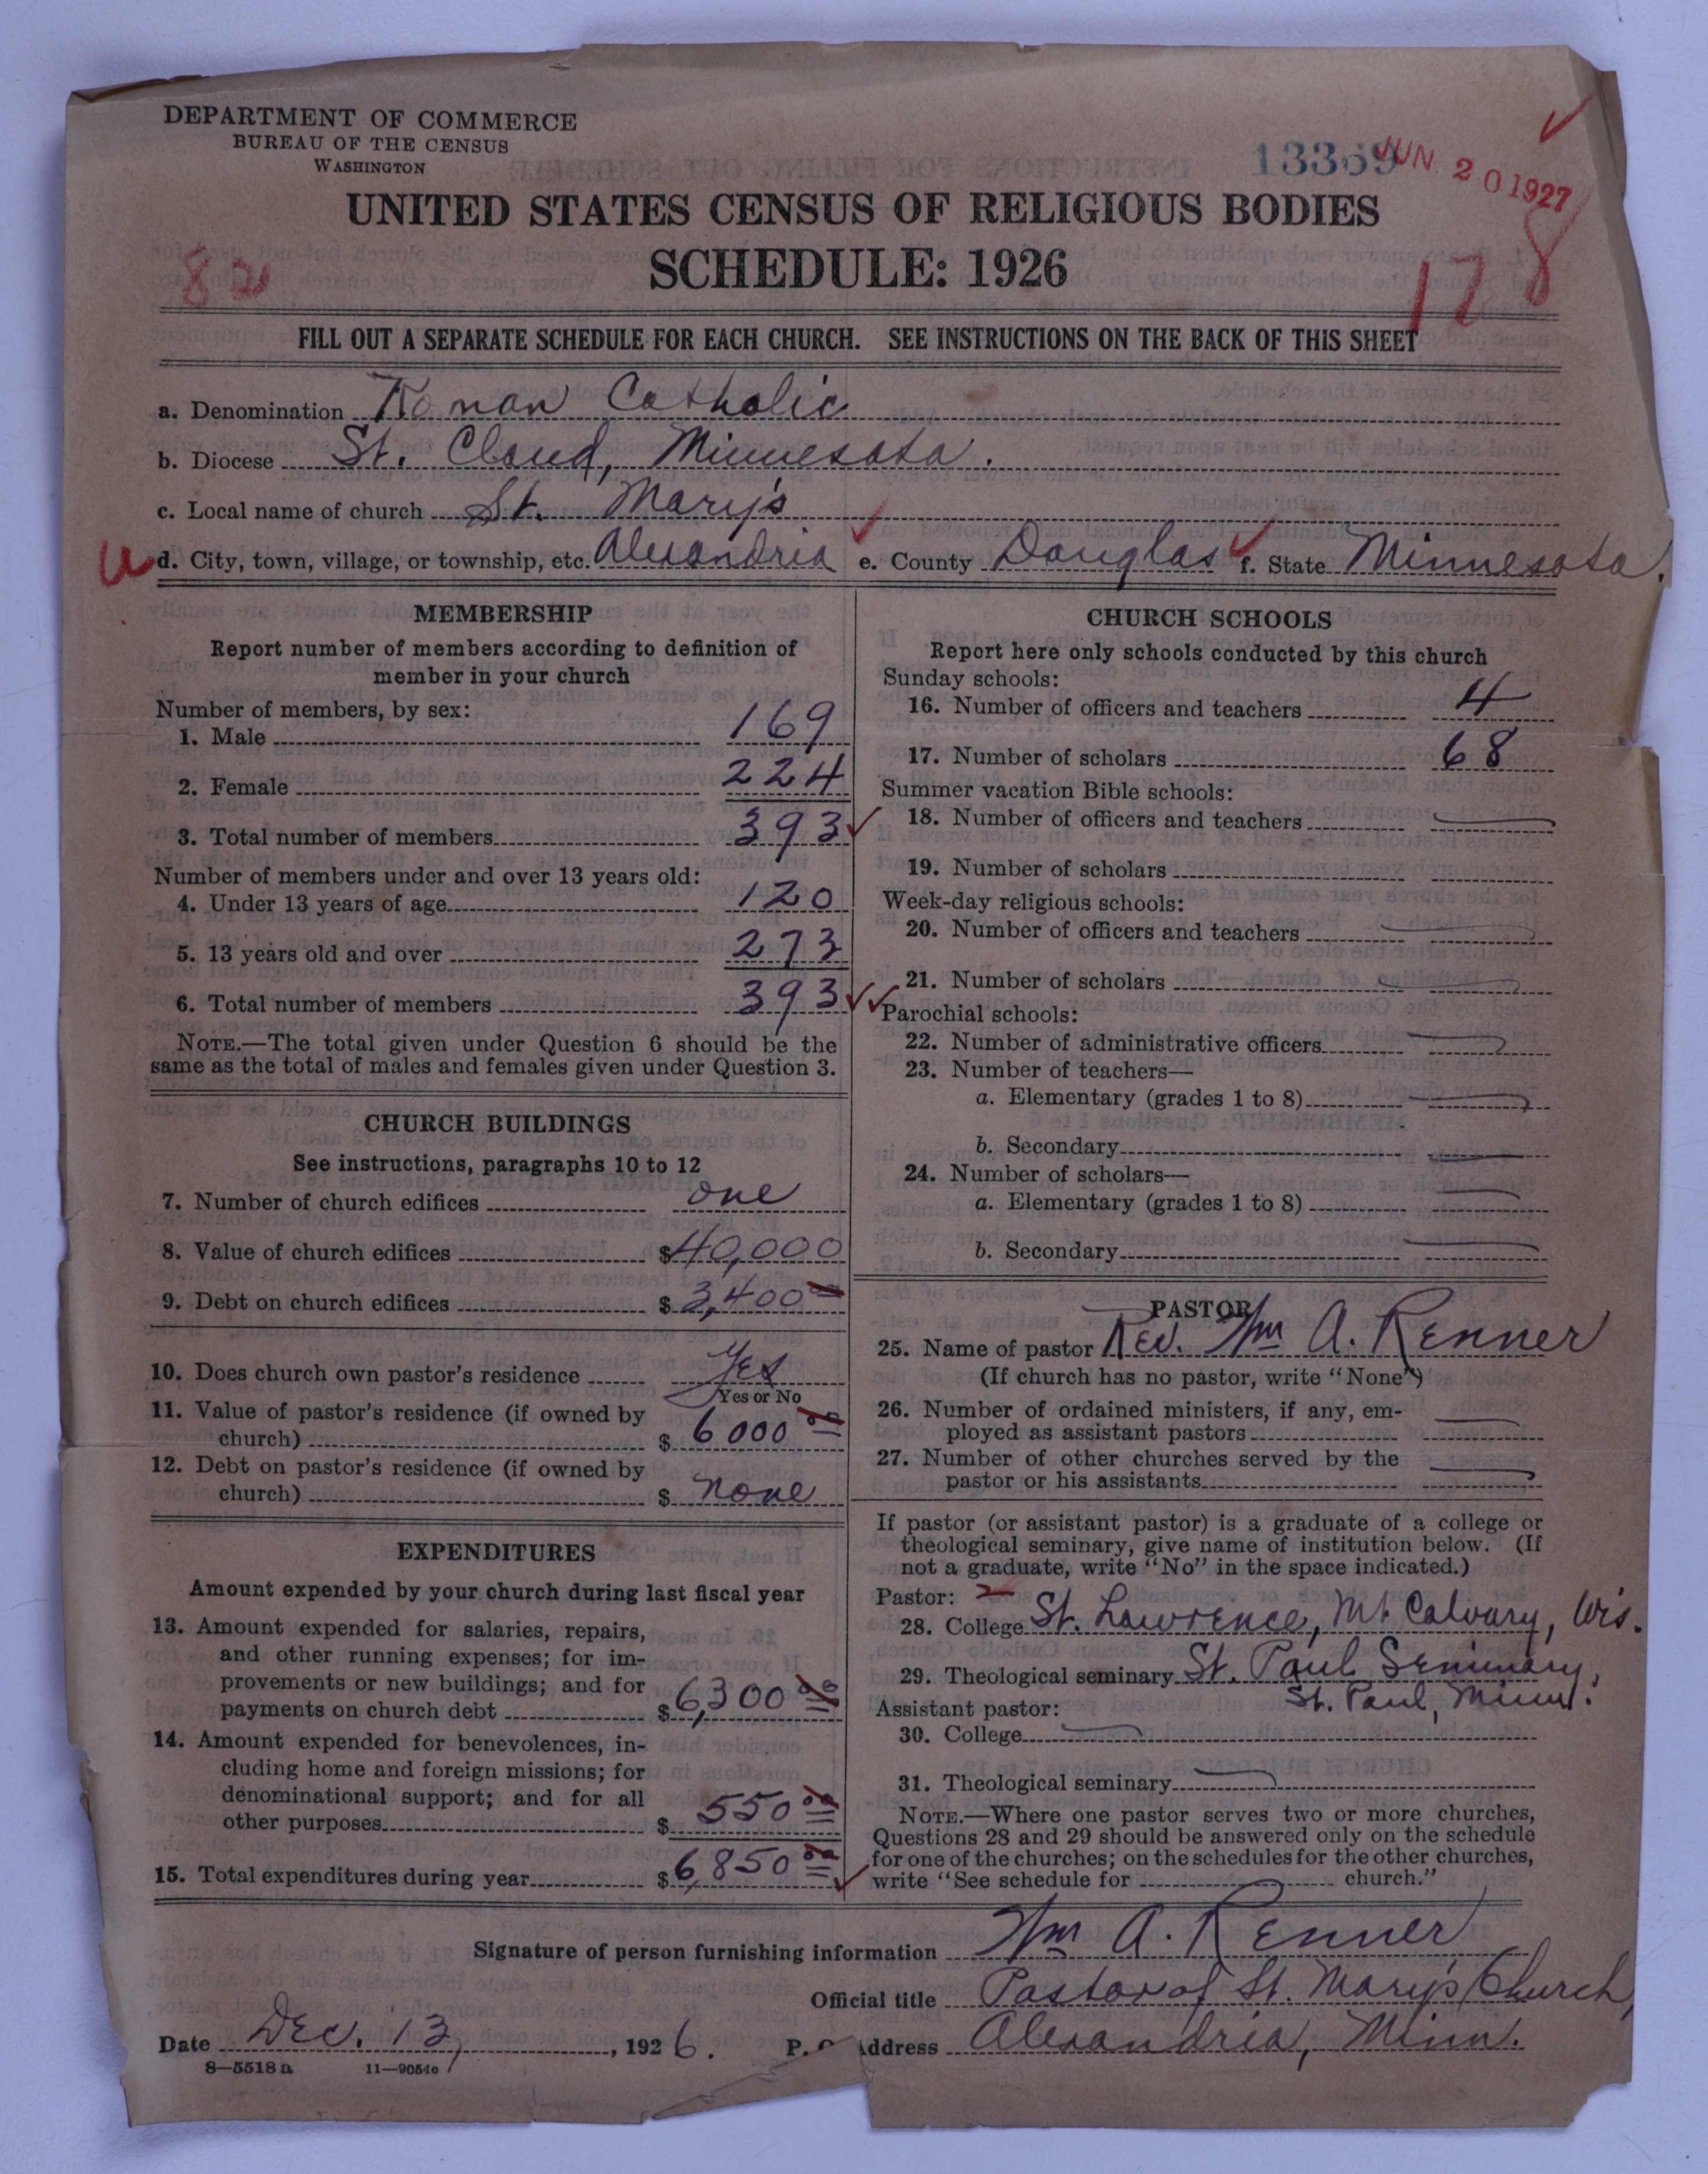 DEPARTMENT OF COMMERCE
BUREAU OF THE CENSUS
WASHINGTON
13369
JUN 20 1927
UNITED STATES CENSUS OF RELIGIOUS BODIES
SCHEDULE: 1926
82
178
FILL OUT A SEPARATE SCHEDULE FOR EACH CHURCH. SEE INSTRUCTIONS ON THE BACK OF THIS SHEET
a. Denomination Roman Catholic
b. Diocese St. Cloud, Minnesota.
c. Local name of church St. Mary's
u d. City, town, village, or township, etc. Alexandria e. County Douglas f. State Minnesota.
MEMBERSHIP
Report number of members according to definition of
member in your church
Number of members, by sex:
1. Male 169
2. Female 224
3. Total number of members 393
Number of members under and over 13 years old:
4. Under 13 years of age 120
5. 13 years old and over 273
6. Total number of members 393
NOTE.—The total given under Question 6 should be the
same as the total of males and females given under Question 3.
CHURCH BUILDINGS
See instructions, paragraphs 10 to 12
7. Number of church edifices one
8. Value of church edifices $40,000
9. Debt on church edifices $3,400 00
10. Does church own pastor's residence Yes
Yes or No
11. Value of pastor's residence (if owned by
church) $6000 00
12. Debt on pastor's residence (if owned by
church) $none
EXPENDITURES
Amount expended by your church during last fiscal year
13. Amount expended for salaries, repairs,
and other running expenses; for im-
provements or new buildings; and for
payments on church debt $6,300 00
14. Amount expended for benevolences, in-
cluding home and foreign missions; for
denominational support; and for all
other purposes $550 00
15. Total expenditures during year $6,850 00
CHURCH SCHOOLS
Report here only schools conducted by this church
Sunday schools:
16. Number of officers and teachers 4
17. Number of scholars 68
Summer vacation Bible schools:
18. Number of officers and teachers
19. Number of scholars
Week-day religious schools:
20. Number of officers and teachers
21. Number of scholars
Parochial schools:
22. Number of administrative officers
23. Number of teachers—
a. Elementary (grades 1 to 8)
b. Secondary
24. Number of scholars—
a. Elementary (grades 1 to 8)
b. Secondary
PASTOR
25. Name of pastor Rev. Wm A. Renner
(If church has no pastor, write "None")
26. Number of ordained ministers, if any, em-
ployed as assistant pastors
27. Number of other churches served by the
pastor or his assistants
If pastor (or assistant pastor) is a graduate of a college or
theological seminary, give name of institution below. (If
not a graduate, write "No" in the space indicated.)
Pastor: 2
28. College St. Lawrence, Mt. Calvary, Wis.
29. Theological seminary St. Paul Seminary,
St. Paul, Minn.
Assistant pastor:
30. College
31. Theological seminary
NOTE.—Where one pastor serves two or more churches,
Questions 28 and 29 should be answered only on the schedule
for one of the churches; on the schedules for the other churches,
write "See schedule for church."
Signature of person furnishing information Wm A. Renner
Official title Pastor of St. Mary's Church,
Date Dec. 13, 1926. P. O. Address Alexandria, Minn.
8—5518 a 11—9054o